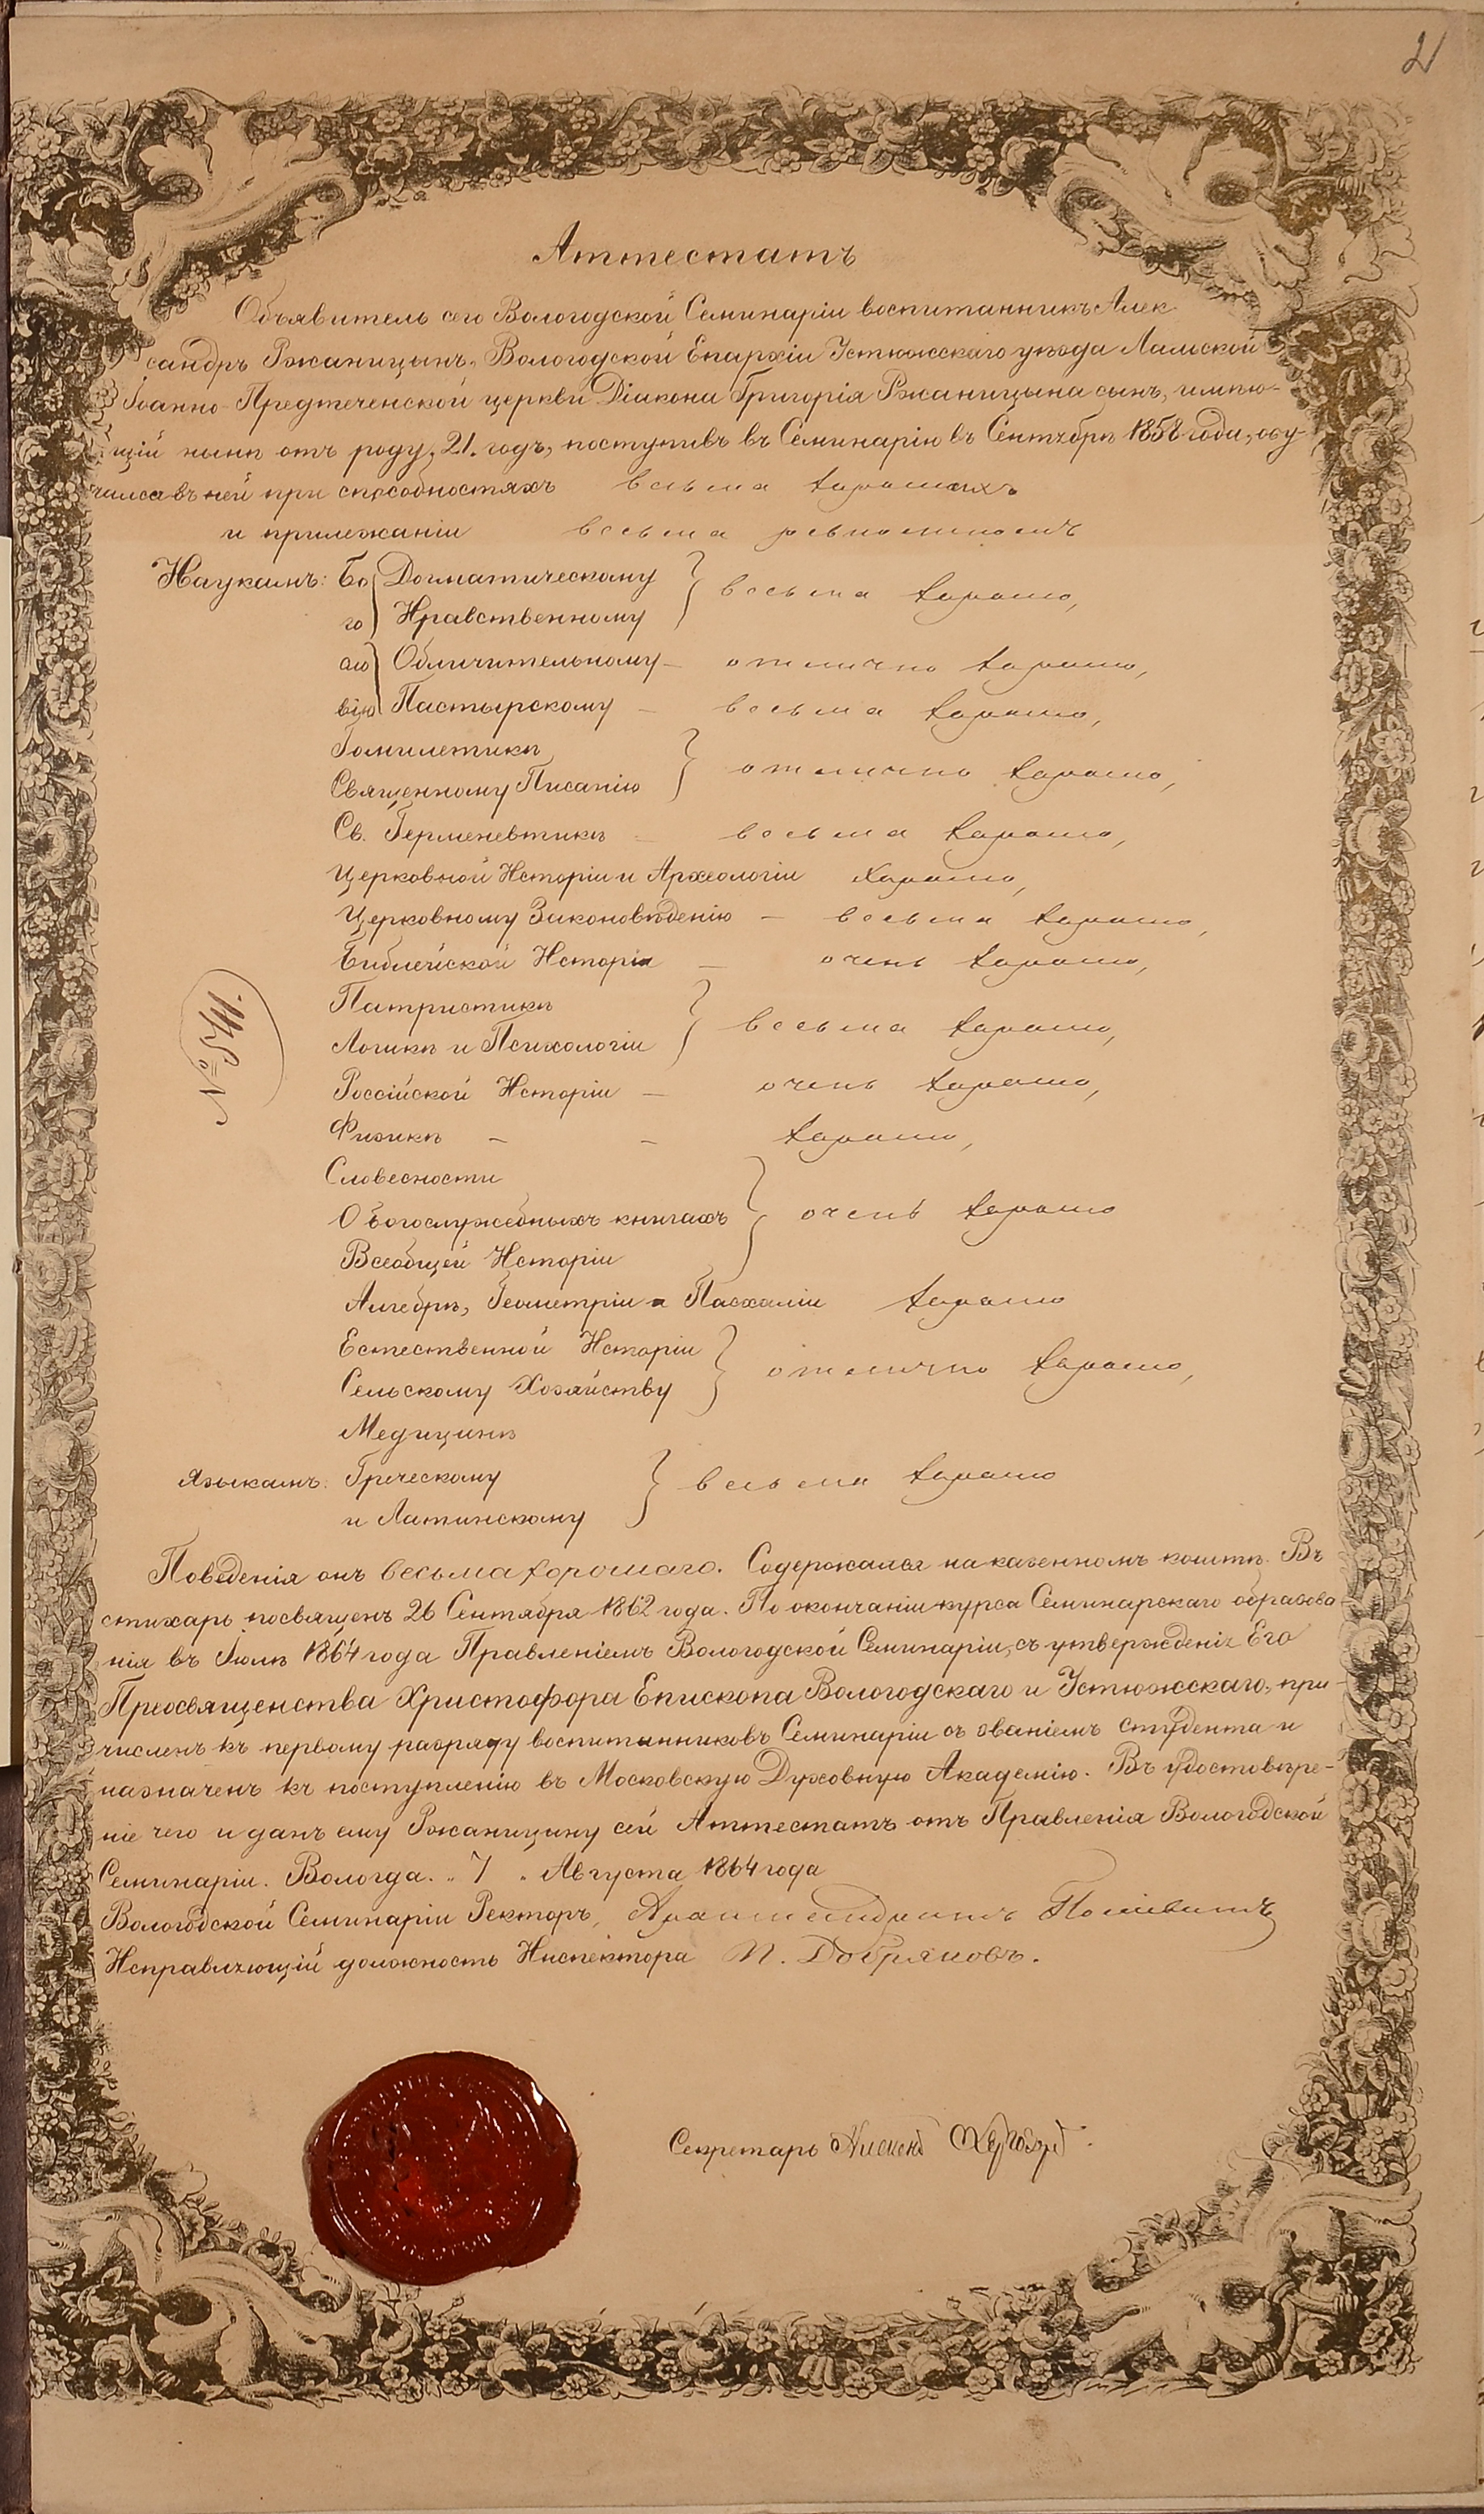 2
Аттестатъ
Объявитель сего Вологодской Семинаріи воспитанникъ Алек
сандръ Ржаницынъ, Вологодской Епархіи Устюжскаго уѣзда Ламской
Іоанно-Предтеченской церкви Діакона Григорія Ржаницына сынъ, имѣю-
щій нынѣ отъ роду, 21. годъ, поступивъ въ Семинарію въ Сентябрѣ 1858 года, обу-
чался въ ней при способностяхъ весьма хорошихъ
и прилежаніи весьма ревностномъ
Наукамъ: Бо Догматическому } весьма хорошо,
го Нравственному
сло Обличительному – отлично хорошо,
вію Пастырскому – весьма хорошо,
Гомилетикѣ } отлично хорошо,
Священному Писанію
Св. Герменевтикѣ – весьма хорошо,
Церковной Исторіи и Археологіи хорошо,
Церковному Законовѣденію – весьма хорошо,
Библейской Исторіи – очень хорошо,
Патристикѣ } весьма хорошо,
Логикѣ и Психологіи
Россійской Исторіи – очень хорошо,
Физикѣ – – хорошо,
Словесности
О богослужебныхъ книгахъ } очень хорошо
Всеобщей Исторіи
Алгебрѣ, Геометріи и Пасхаліи хорошо
Естественной Исторіи } отлично хорошо,
Сельскому Хозяйству
Медицинѣ
Языкамъ: Греческому } весьма хорошо
и Латинскому
Поведенія онъ весьма хорошаго. Содержался на казенномъ коштѣ. Въ
стихарь посвященъ 26 Сентября 1862 года. По окончаніи курса Семинарскаго образова
нія въ Іюлѣ 1864 года Правленіемъ Вологодской Семинаріи, съ утвержденія Его
Преосвященства Христофора Епископа Вологодскаго и Устюжскаго, при-
численъ къ первому разряду воспитанниковъ Семинаріи съ званіемъ студента и
назначенъ къ поступленію въ Московскую Духовную Академію. Въ удостовѣре-
ніе чего и данъ ему Ржаницыну сей Аттестатъ отъ Правленія Вологодской
Семинаріи. Вологда. „ 7 „ Августа 1864 года
Вологодской Семинаріи Ректоръ, Архимандритъ
Исправляющій должность Инспектора П. Добряковъ.
Секретарь